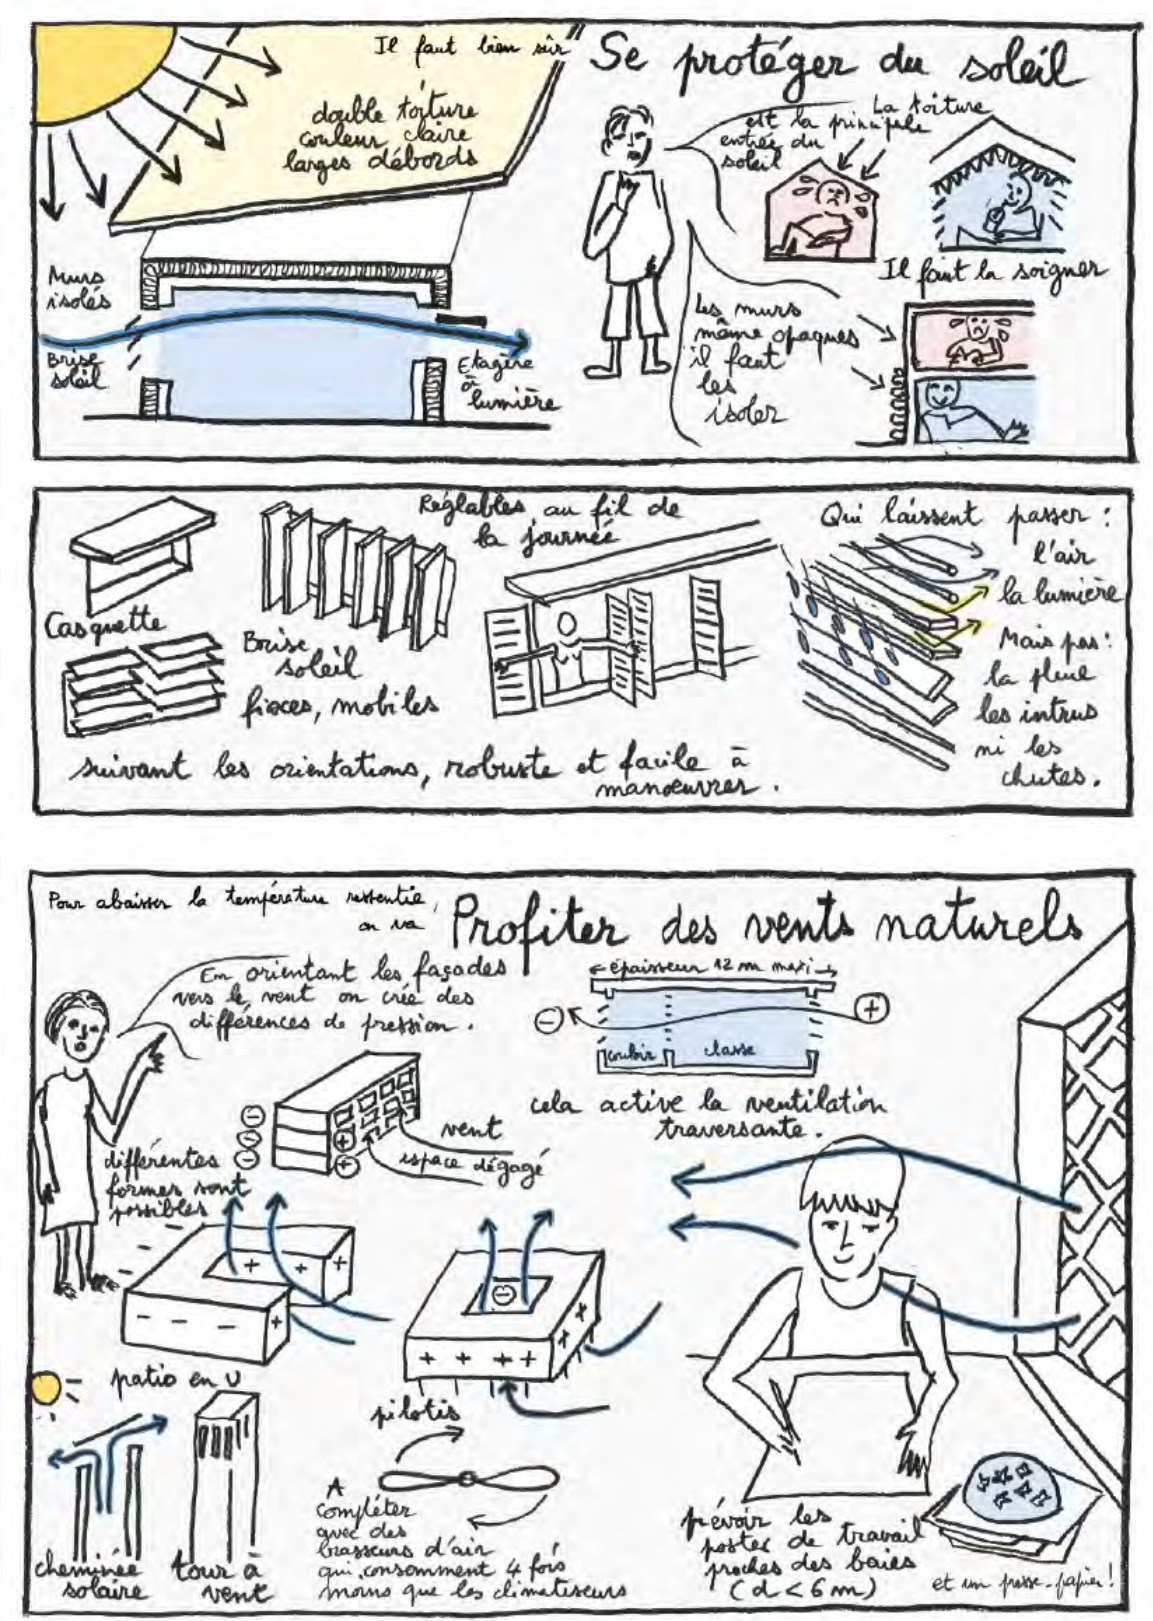 Il faut bien sûr
double toiture
couleur claire
larges débords
Murs
isolés
Brise
soleil
Etagère
à
lumière
Se protéger du soleil
La toiture
est la principale
entrée du
soleil
Il faut la soigner
Les murs
même opaques
il faut
les
isoler
Casquette
Brise
soleil
fixes, mobiles
Réglables au fil de
la journée
suivant les orientations, robuste et facile à
manœuvrer.
Qui laissent passer :
l'air
la lumière
Mais pas :
la pluie
les intrus
ni les
chutes.
Pour abaisser la température ressentie,
on va
Profiter des vents naturels
En orientant les façades
vers le vent on crée des
différences de pression.
← épaisseur 12 m maxi →
- +
couloir classe
cela active la ventilation
traversante.
vent
espace dégagé
différentes
formes sont
possibles
patio en U
pilotis
cheminée
solaire
tour à
vent
A
compléter
avec des
brasseurs d'air
qui consomment 4 fois
moins que les climatiseurs
prévoir les
postes de travail
proches des baies
(d < 6 m)
et un presse-papier !